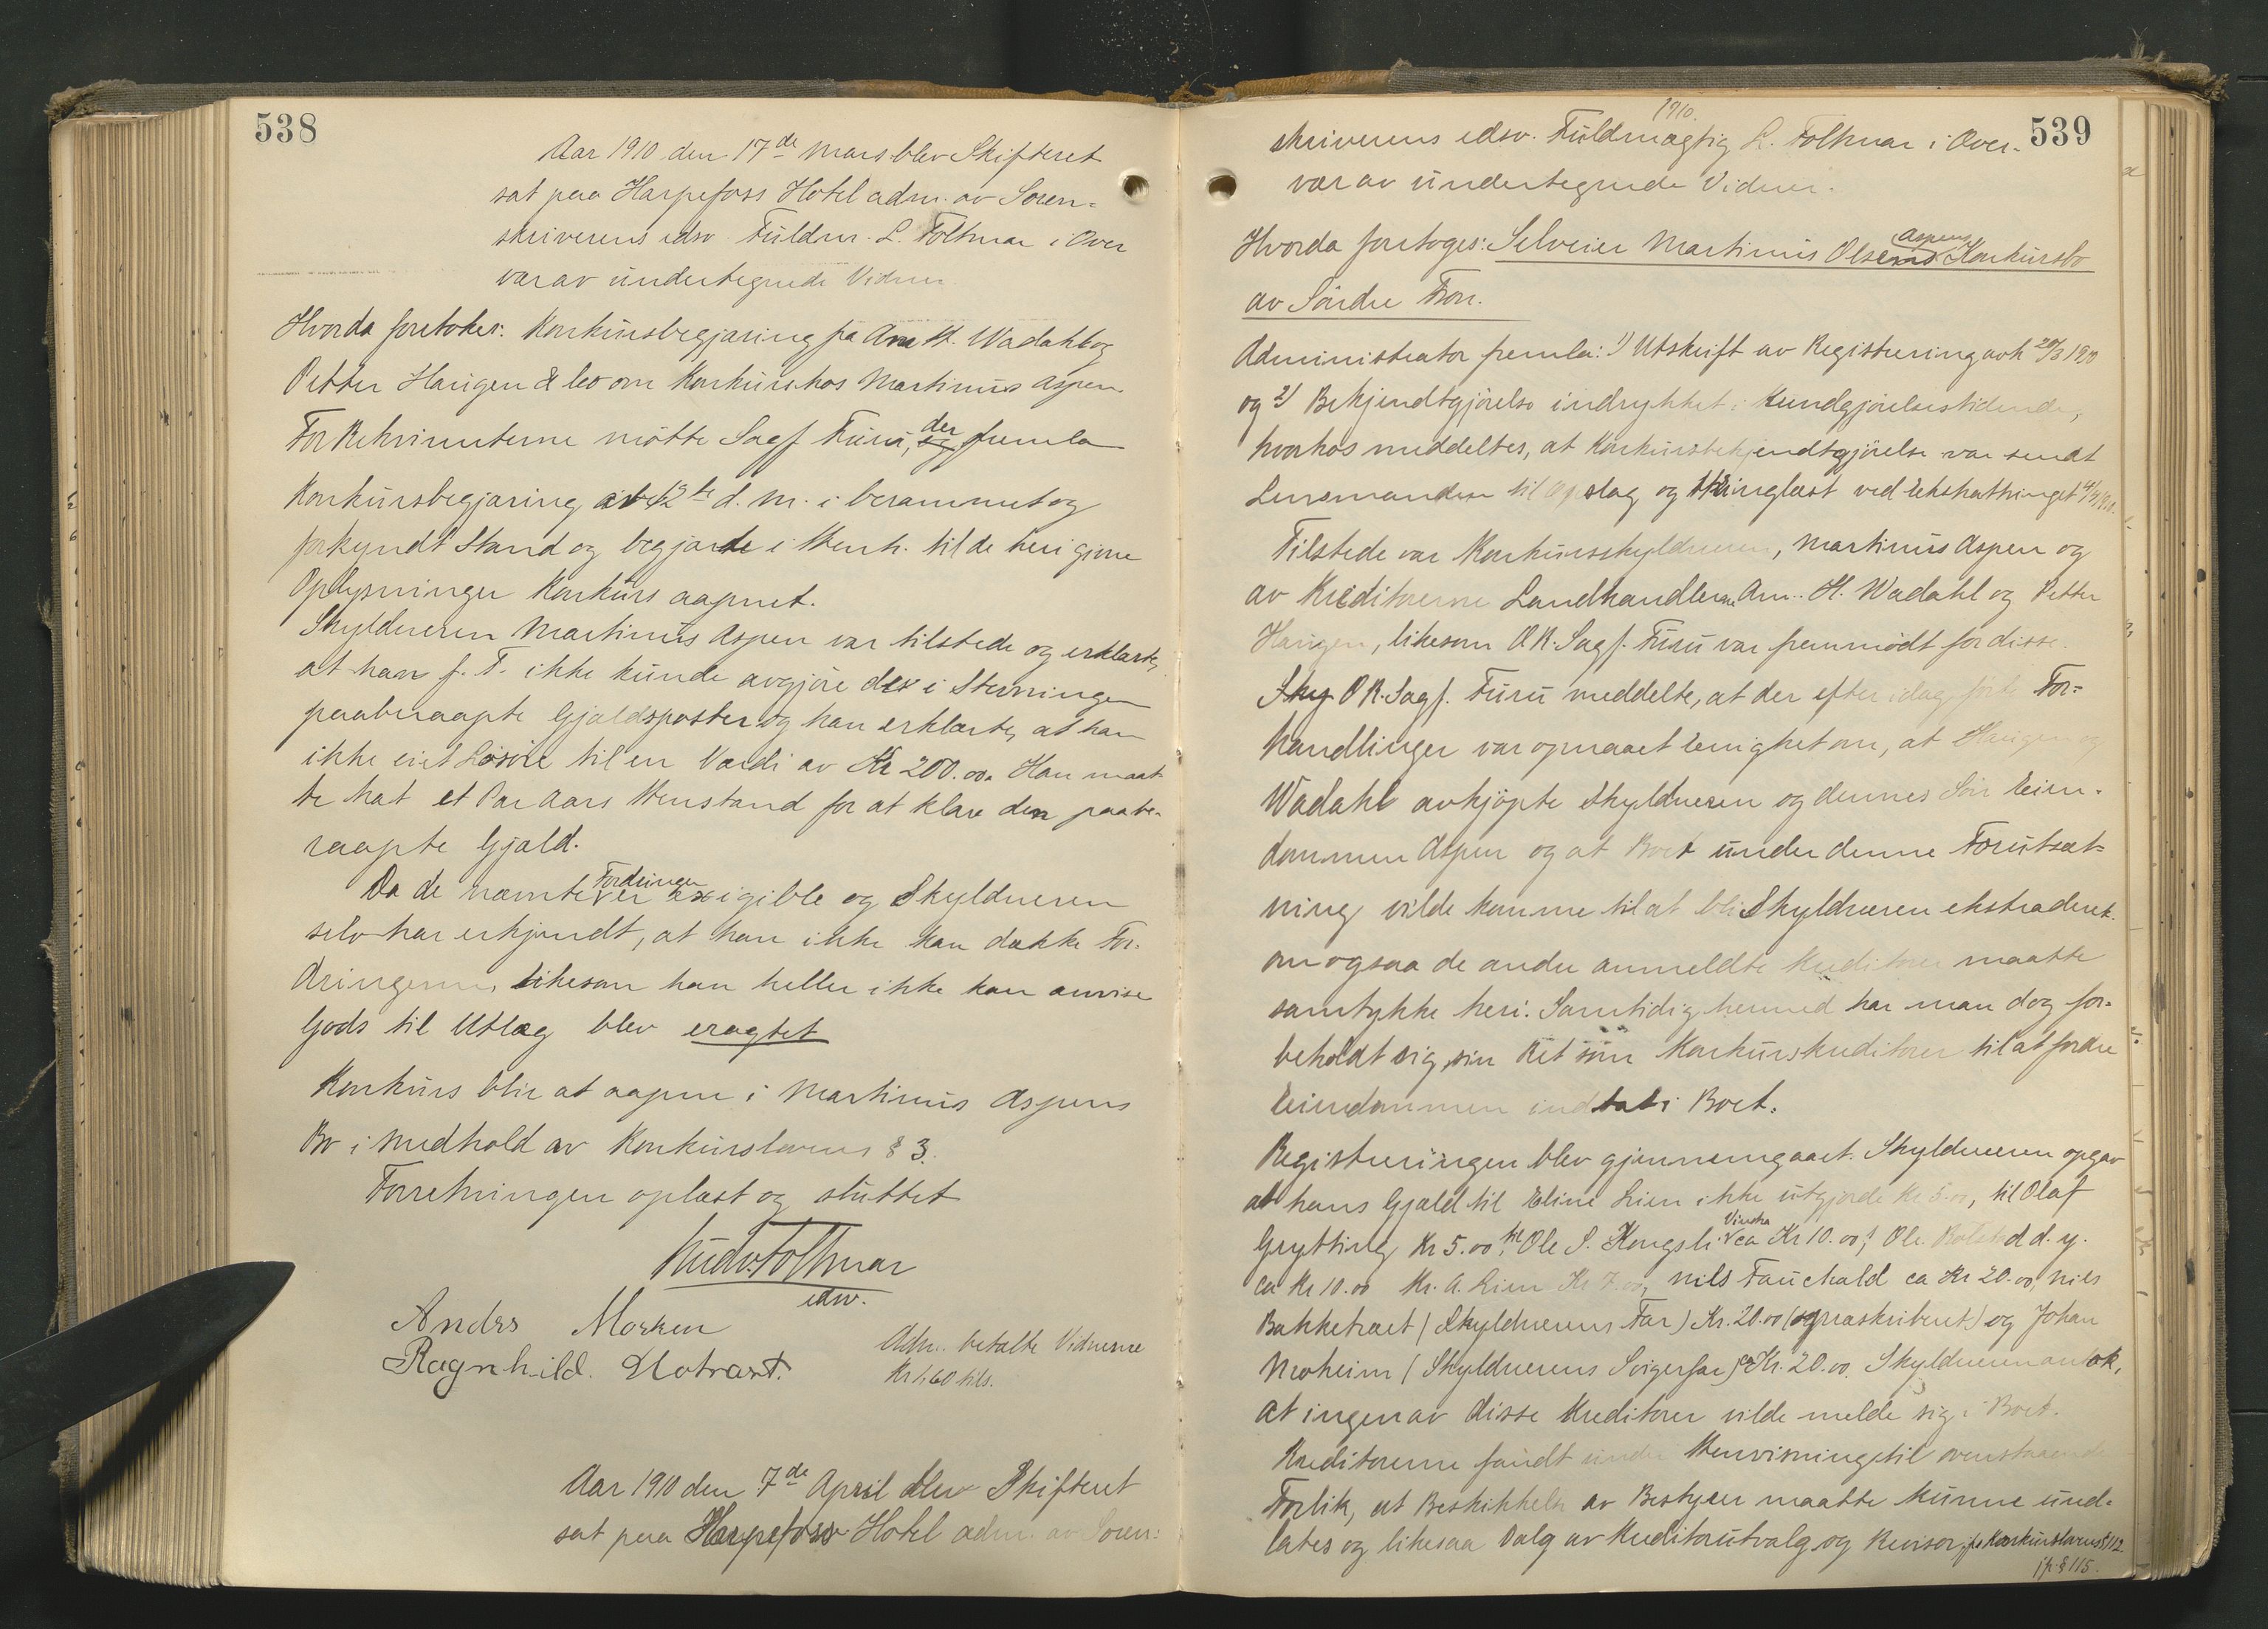 538
Aar 1910 den 17de Mars blev Skifteret
sat paa Harpefoss Hotel adm. av Soren-
skriverens edsv. Fuldm. L. Folkmar i Over
vær av undertegnede Vidner.
Hvorda foretokes: Konkursbegjæring fra Am H. Wadahl og
Petter Haugen & leo om Konkurs hos Martinus Aspen
For Rekvirenterne møtte Sagf. Furu, der fremla
Konkursbegjæring av 12te d. m. i berammet og
forkyndt Stand og begjærte i Henh. til de heri givne
Oplysninger Konkurs aapnet.
Skyldneren Martinus Aspen var tilstede og erklærte,
at han p. T. ikke kunde avgjøre de i Stevningen
paaberaapte Gjældsposter og han erklærte, at han
ikke eiet Løsøre til en Værdi av Kr 200.00. Han maat-
te hat et Par Aars Henstand for at klare den paabe-
raapte Gjæld.
Da de nævnte Fordringer er exigible og Skyldneren
selv har erkjendt, at han ikke kan dække For-
dringerne, likesom han heller ikke kan anvise
Gods til Utlæg blev eragtet
Konkurs blir at aapne i Martinus Aspens
Bo i Medhold av Konkurslovens § 3.
Forretningen oplæst og sluttet
Ludv. Folkmar
edsv.
Anders Morken
Ragnhild Flotvæt.
Adm. betalte Vidnerne
Kr 1.60 tils.
Aar 1910 den 7de April blev Skifteret
sat paa Harpefoss Hotel adm. av Soren-
539
1910.
skriverens edsv. Fuldmægtig L. Folkmar i Over-
vær av undertegnede Vidner.
Hvorda foretoges: Selveier Martinus Olsens Aspens Konkursbo
av Søndre Fron.
Administrator fremla: 1) Utskrift av Registrering avh 29/3 1910
og 2) Bekjendtgjørelse indrykket i Kundgjørelsestidende,
hvorhos meddeltes, at Konkursbekjendtgjørelse var sendt
Lensmanden til Opslag og thinglæst ved Ekstrathinget 4/4 1910.
Tilstede var Konkursskyldneren, Martinus Aspen og
av Kreditorerne Landhandlerne Am. H. Wadahl og Petter
Haugen, likesom O.R. Sagf. Furu var fremmødt for disse.
Sky O.R. Sagf. Furu meddelte, at der efter idag førte For-
handlinger var opnaaet Enighet om, at Haugen og
Wadahl avkjøpte Skyldneren og dennes Søn Eien-
dommen Aspen og at Boet under denne Forutsæt-
ning vilde komme til at bli Skyldneren ekstraderet
om ogsaa de andre anmeldte Kreditorer maatte
samtykke heri. Samtidig hermed har man dog for-
beholdt sig sin Ret som Konkurskreditorer til at fordre
Eiendommen indtat i Boet.
Registreringen blev gjennemgaaet. Skyldneren opgav
at hans Gjæld til Eline Lien ikke utgjorde Kr 5.00, til Olaf
Grytting Kr 5.00, til Ole S. Kongsli Vinstra ca Kr 10.00, Ole d. y.
ca Kr 10.00 Kr. A. Lien Kr 7.00, Nils Fauchald ca Kr 20.00, Nils
Bakketræet (Skyldnerens Far) Kr. 20.00 (og præskriberet) og Johan
Moheim (Skyldnerens Svigerfar) ca Kr. 20.00. Skyldneren antok,
at ingen av disse Kreditorer vilde melde sig i Boet.
Kreditorerne fandt under Henvisning til ovenstaaende
Forlik, at Beskikkelse av Bestyrer maatte kunne und-
lates og likesaa Valg av Kreditorutvalg og Revisor jfr Konkurslovens § 112
jfr § 115.